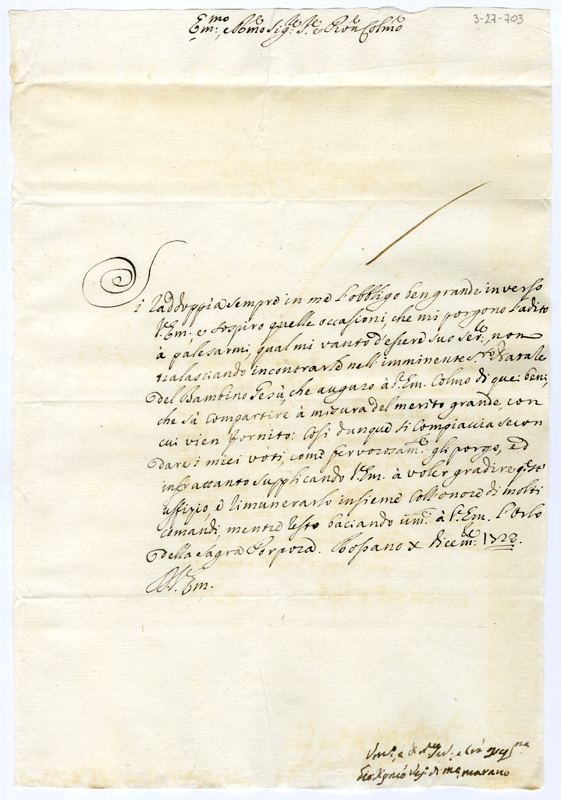 3-27-703
Em:mo e Rmo Sigr. Sr. e Pron Colmo
Si raddoppia sempre in me l'obbligo ben grande inverso
V'Em:, e sospiro quelle occasioni, che mi porgono l'adito
à palesarmi, qual mi vanto d'essere suo Serre, non
tralasciando incontrarlo nell'imminente Natale
del Bambino Gesù, che auguro à V'Em. Colmo di quei beni,
che sà compartire à mizura del merito grande, con
cui vien fornito: Così dunque si compiaccia secon
dare i miei voti, come fervorosamte gli porgo, ed
infrattanto supplicando V'Em. à voler gradire questo
uffizio, e rimunerarlo insieme coll'onore di molti
comandi, mentre resto baciando à V'Em. l'Orlo
della Sagra Porpora. X Dicem. 1723.
Di V'Em.
di Marano